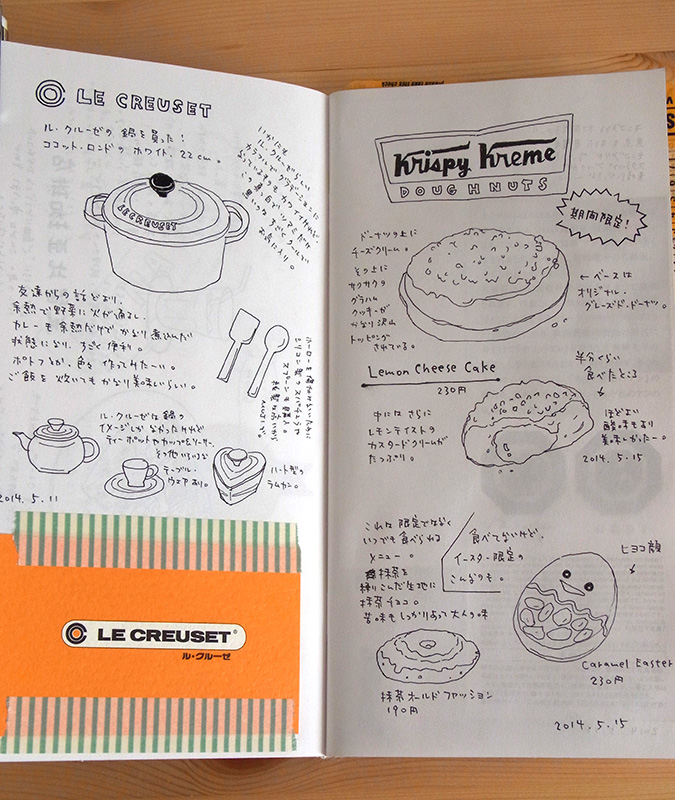 LE CREUSET
ル・クルーゼの 鍋を買った!
ココット・ロンドの ホワイト. 22cm。
いかにも
ル・クルーゼらしい
カラフルで グラデーションに
なっているやつも カワイイけれど、
LE CREUSET
友達からの話どおり、
余熱で野菜に火が通るし、
カレーも余熱だけで かなり煮込んだ
状態になり、すごく便利。
ポトフとか、色々作ってみたい〜。
ご飯を炊いてもかなり美味しいらしい。
ホーローを傷付けないために
シリコン製のスパチュラや
スプーンも購入。
ル・クルーゼは鍋の
イメージしか なかったけれど
ティーポットやカップ&ソーサー、
その他いろいろな
テーブル
ウェアあり。
ハート型の
ラムカン。
2014. 5. 11
LE CREUSET®
ル・クルーゼ
Krispy Kreme
DOUGHNUTS
期間限定!
ドーナツの上に
チーズクリーム。
その上に
サクサクの
グラハム
クッキーが
かなり沢山
トッピング
されている。
← ベースは
オリジナル・
グレーズド・ドーナツ。
Lemon Cheese Cake
230円
半分くらい
食べたところ
中には さらに
レモンテイストの
カスタードクリームが
たっぷり。
ほどよい
酸味もあり
美味しかったー。
2014. 5. 15
これは 限定ではなく
いつでも食べられる
メニュー。
抹茶を
練りこんだ生地に
抹茶チョコ。
苦味もしっかりあって大人の味
抹茶オールドファッション
190円
食べてないけど、
イースター限定の
こんなのも。
ヒヨコ顔
Caramel Easter
230円
2014. 5. 15